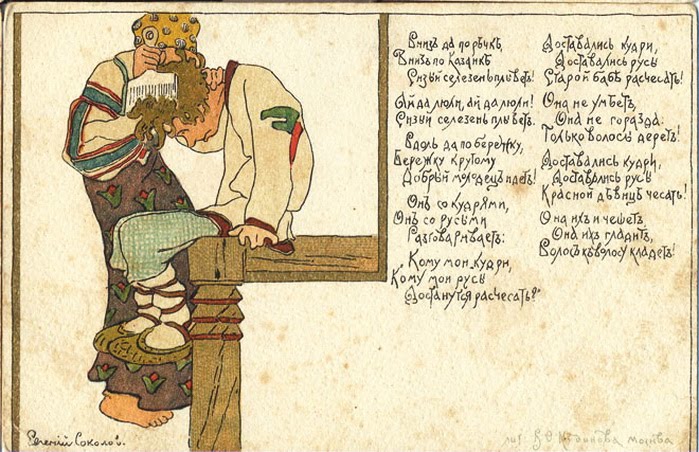 Внизъ да по рѣчкѣ,
Внизъ по Казанкѣ
Сизый селезень плыветъ!
Ай да люли, ай да люли!
Сизый селезень плыветъ.
Вдоль да по бережку,
Бережку крутому
Добрый молодецъ идетъ!
Онъ со кудрями,
Онъ со русыми
Разговариваетъ:
"Кому мои кудри,
Кому мои русы
Достанутся расчесать?"
Доставались кудри,
Доставались русы
Старой бабѣ расчесать!
Она не умѣетъ,
Она не горазда:
Только волосы деретъ!
Доставались кудри,
Доставались русы
Красной дѣвицѣ чесать!
Она ихъ и чешетъ,
Она ихъ гладитъ,
Волосъ къ волосу кладетъ!
Евгеній Соколов.
лит В Ѳ москва